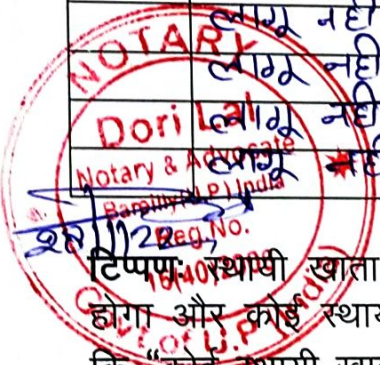 लागू नही
लागू नही
लागू नही
लागू नही
NOTARY
Dori Lal
Notary & Advocate
Bareilly (U.P.) India
Reg.No.
Govt. of U.P.
टिप्पण: स्थायी खाता
होगा और कोई स्था
कि "कोई स्थायी खा